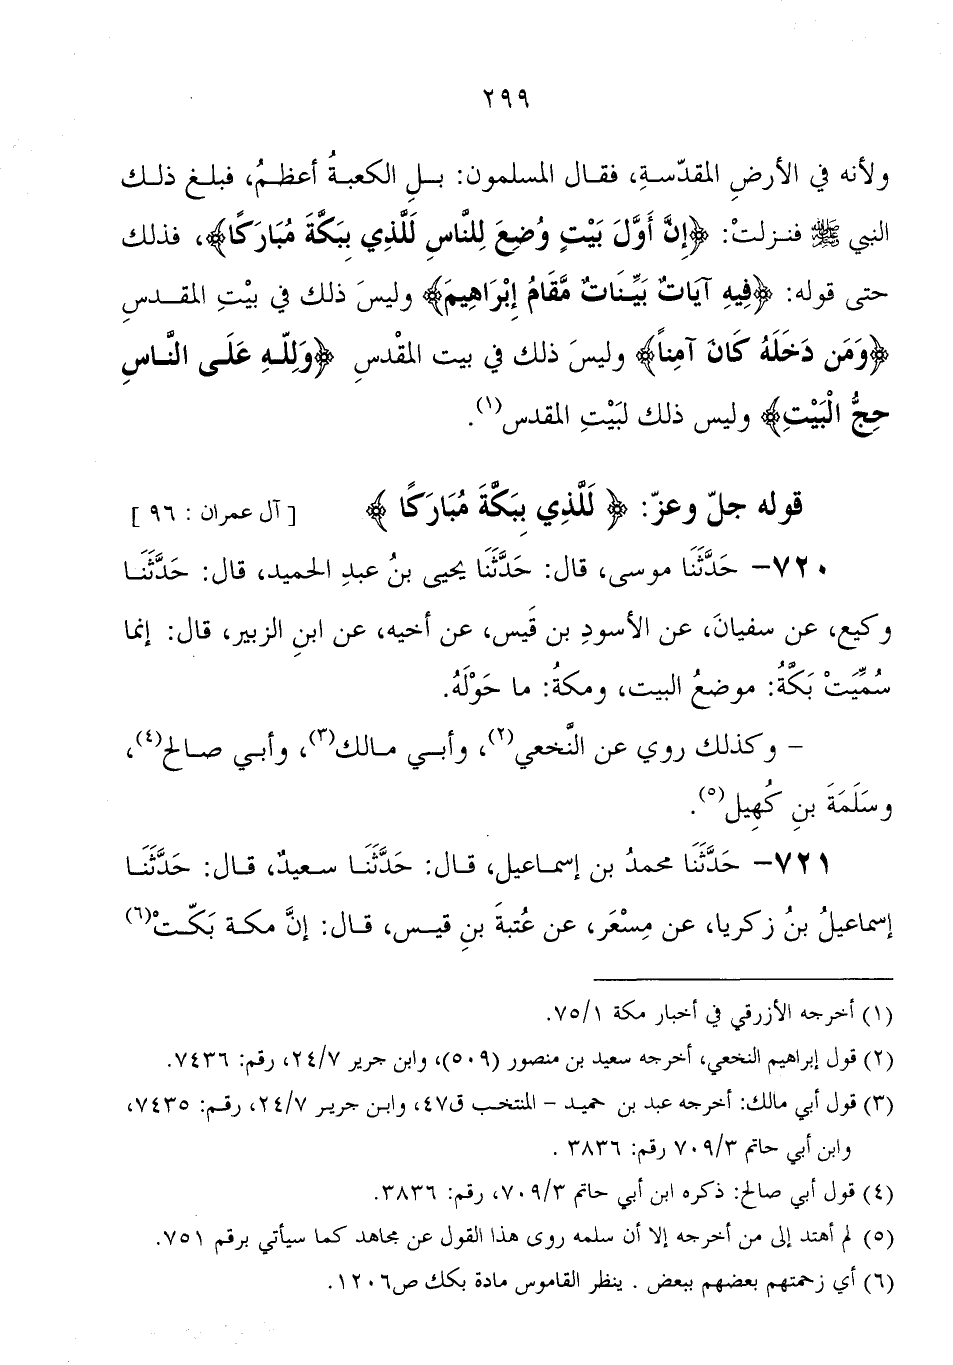 ٢٩٩
ولأنه في الأرضِ المقدّسةِ، فقال المسلمون: بلِ الكعبةُ أعظمُ، فبلغ ذلك
النبي ﷺ فنزلتْ: ﴿إِنَّ أَوَّلَ بَيْتٍ وُضِعَ لِلنَّاسِ لَلَّذِي بِبَكَّةَ مُبَارَكًا﴾، فذلك
حتى قوله: ﴿فِيهِ آيَاتٌ بَيِّنَاتٌ مَّقَامُ إِبْرَاهِيمَ﴾ وليسَ ذلك في بيْتِ المقدسِ
﴿وَمَن دَخَلَهُ كَانَ آمِناً﴾ وليسَ ذلك في بيت المقْدسِ ﴿وَلِلّهِ عَلَى النَّاسِ
حِجُّ الْبَيْتِ﴾ وليس ذلك لبَيْتِ المقدس(١).
قوله جلّ وعزّ: ﴿ لَلَّذِي بِبَكَّةَ مُبَارَكًا ﴾ [آل عمران : ٩٦]
٧٢٠- حَدَّثَنَا موسى، قال: حَدَّثَنَا يحيى بنُ عبدِ الحميد، قال: حَدَّثَنَا
وكيع، عن سفيانَ، عن الأسودِ بن قَيس، عن أخيه، عن ابنِ الزبير، قال: إنما
سُمِّيَتْ بَكَّةُ: موضعُ البيت، ومكةُ: ما حَوْلَهُ.
- وكذلك روي عن النَّخعي(٢)، وأبي مالك(٣)، وأبي صالح(٤)،
وسَلَمَةَ بنِ كُهيل(٥).
٧٢١- حَدَّثَنَا محمدُ بن إسماعيل، قال: حَدَّثَنَا سعيدٌ، قال: حَدَّثَنَا
إسماعيلُ بنُ زكريا، عن مِسْعَر، عن عُتبةَ بنِ قيس، قال: إنَّ مكة بَكّتْ(٦)
(١) أخرجه الأزرقي في أخبار مكة ٧٥/١.
(٢) قول إبراهيم النخعي، أخرجه سعيد بن منصور (٥٠٩)، وابن جرير ٢٤/٧، رقم: ٧٤٣٦.
(٣) قول أبي مالك: أخرجه عبد بن حميد - المنتخب ق٤٧، وابن جرير ٢٤/٧، رقم: ٧٤٣٥،
وابن أبي حاتم ٧٠٩/٣ رقم: ٣٨٣٦ .
(٤) قول أبي صالح: ذكره ابن أبي حاتم ٧٠٩/٣، رقم: ٣٨٣٦.
(٥) لم أهتد إلى من أخرجه إلا أن سلمه روى هذا القول عن مجاهد كما سيأتي برقم ٧٥١.
(٦) أي زحمتهم بعضهم ببعض . ينظر القاموس مادة بكك ص١٢٠٦.